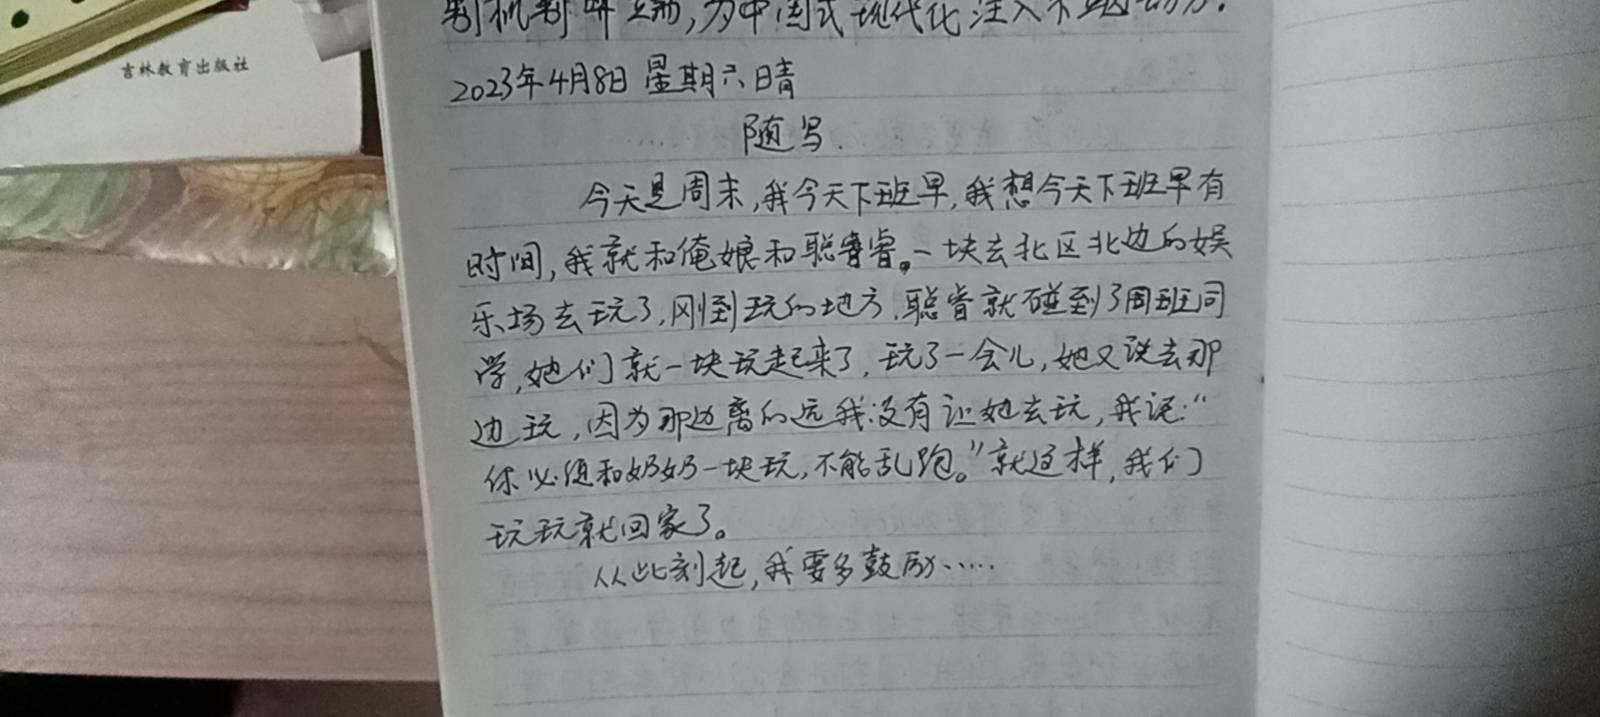 制机制弊端,为中国式现代化注入不竭动力.
吉林教育出版社
2023年4月8日 星期六 晴
随写.
今天是周末,我今天下班早,我想今天下班早有
时间,我就和俺娘和聪睿。一块去北区北边的娱
乐场去玩了,刚到玩的地方,聪睿就碰到了周班同
学,她们就一块玩起来了,玩了一会儿,她又说去那
边玩,因为那边离的远我没有让她去玩,我说:“
你必须和奶奶一块玩,不能乱跑。”就这样,我们
玩玩就回家了。
从此刻起,我要多鼓励……